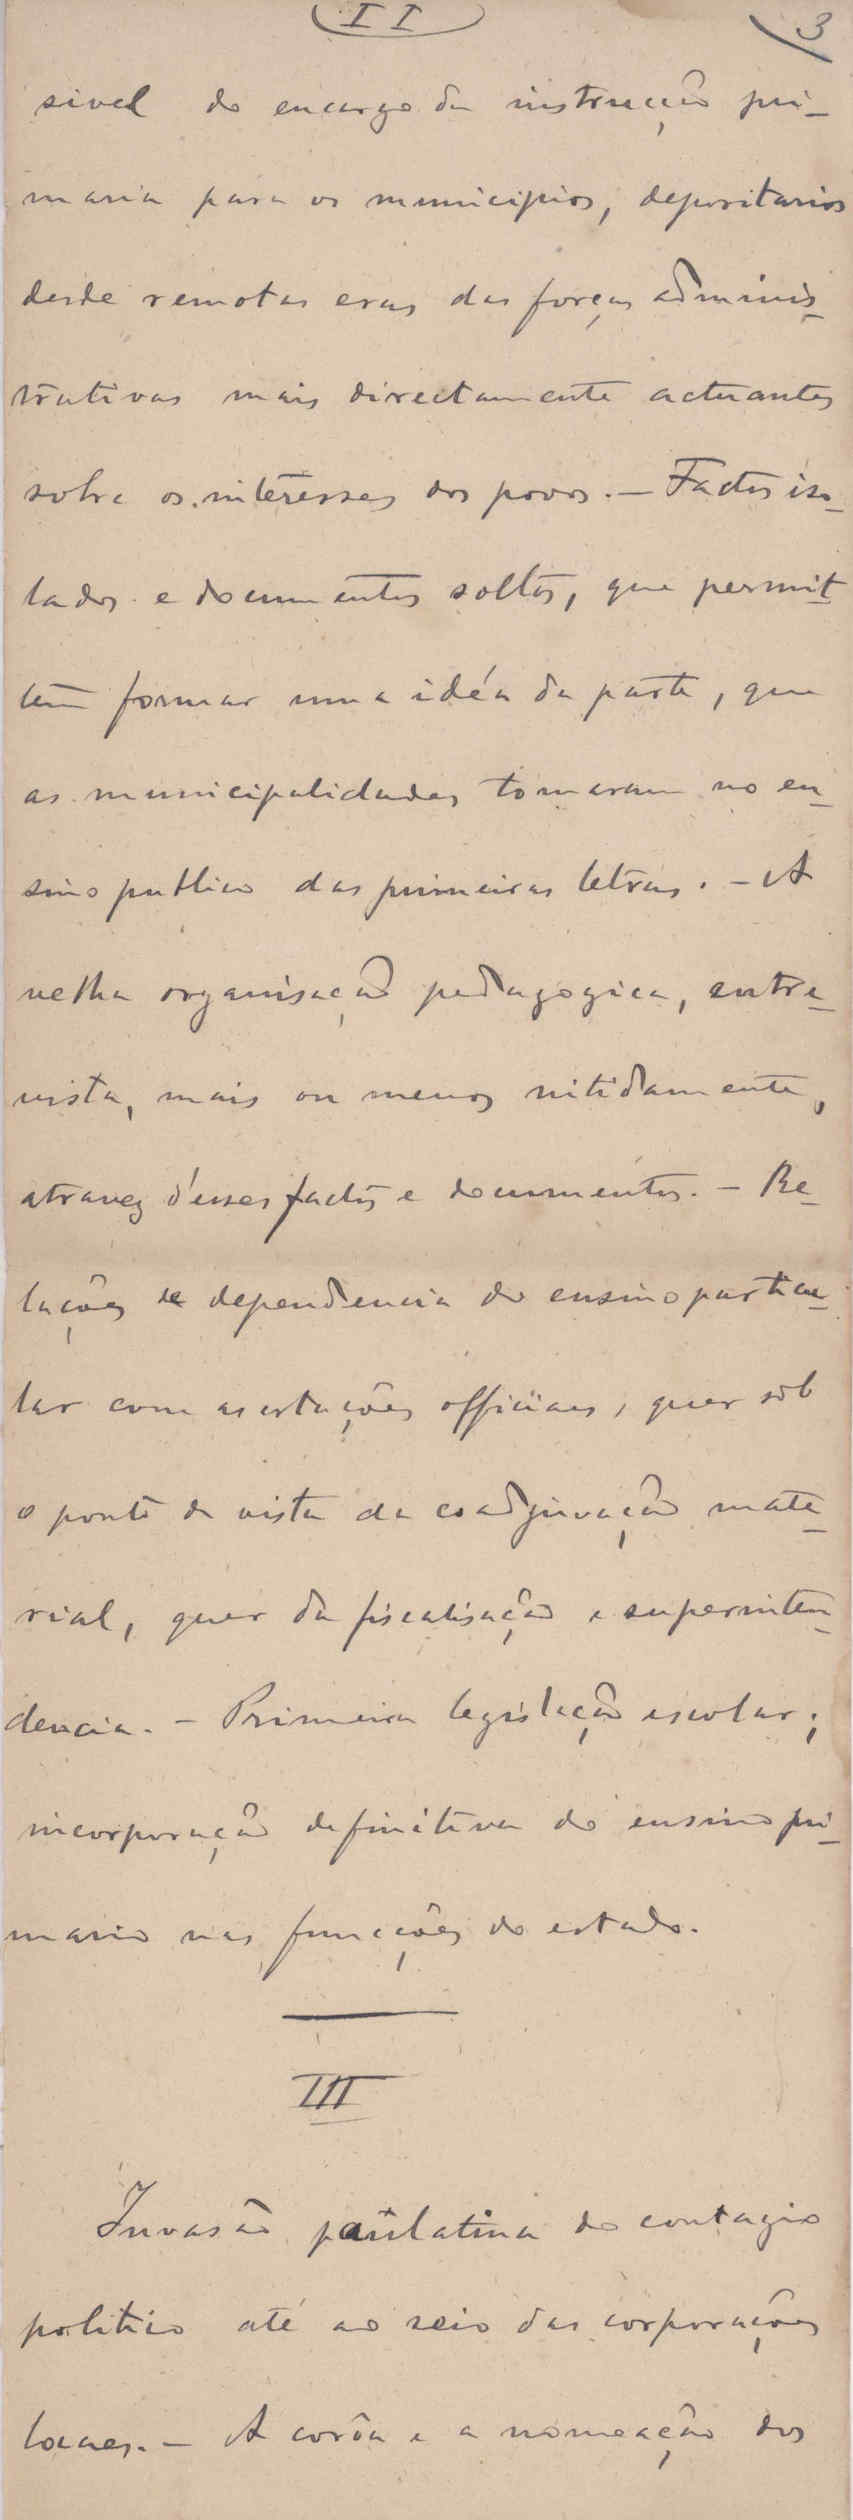 II
3
sivel do encargo da instrucção pri-
maria para os municipios, depositarios
desde remotas eras das forças adminis-
trativas mais directamente actuantes
sobre os interesses dos povos. — Factos iso-
lados e documentos soltos, que permit-
tem formar uma idéa da parte, que
as municipalidades tomaram no en-
sino publico das primeiras letras. — A
velha organisação pedagogica, entre-
vista, mais ou menos nitidamente,
atravez d'esses factos e documentos. — Re-
lações de dependencia do ensino particu-
lar com as estações officiaes, quer sob
o ponto de vista da coadjuvação mate-
rial, quer da fiscalisação e superinten-
dencia. — Primeira legislação escolar;
incorporação definitiva do ensino pri-
mario nas funcções do estado.
III
Invasão paulatina do contagio
politico até ao seio das corporações
locaes. — A corôa e a nomeação dos